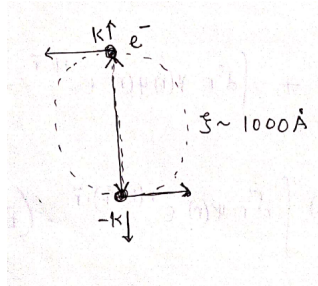 k↑ e⁻
ξ ~ 1000 Å
-k↓